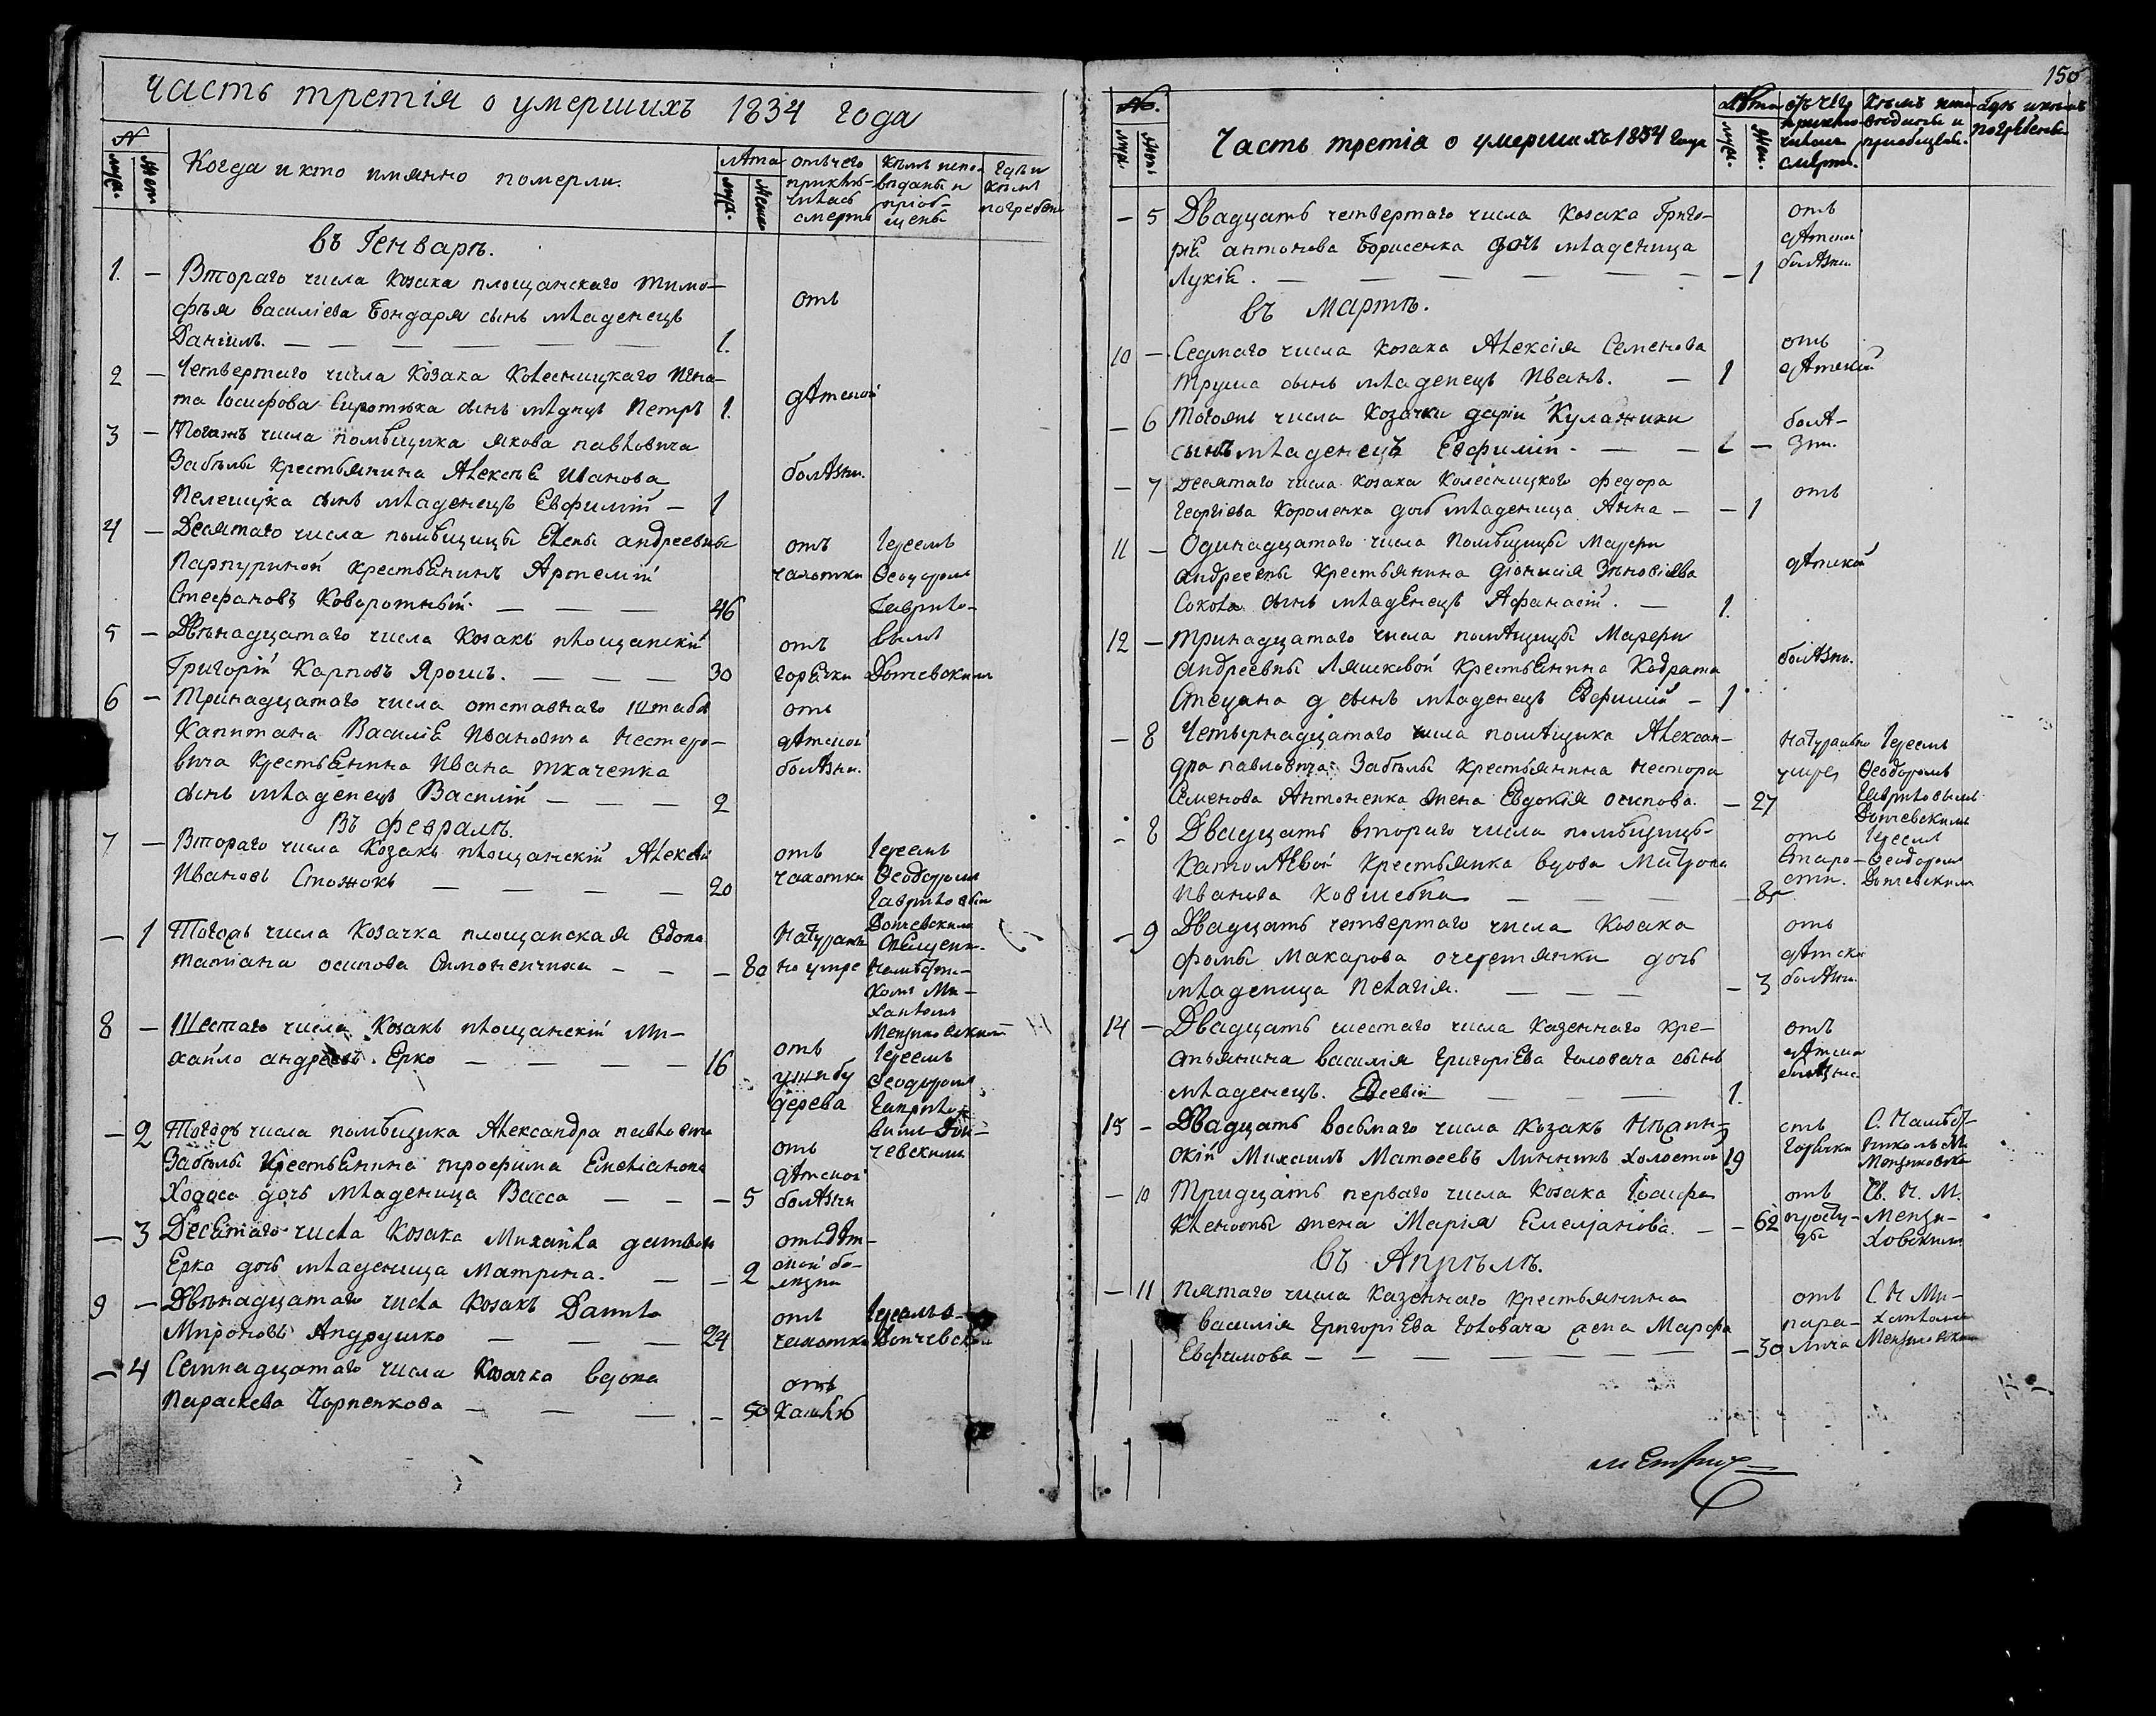 Часть третія о умершихъ 1834 года
N
муж.
жен
Когда и кто имянно померли.
лѣта
муж.
жен
отъ чего приклю-
чилась
смерть
Кѣмъ испо-
вѣданы и
пріоб-
щены
Гдѣ и
кѣмъ
погребены
въ Генварѣ.
1. — Втораго числа козака площанскаго Тимо-
фѣя Василіева Бондаря сынъ младенецъ
Даніилъ. — 1.
отъ
2 — Четвертаго числа козака Колесницкаго Игна-
та Іосифова Сиротюка сынъ младнцъ Петръ 1.
дѣтской
3 — Тогожъ числа помѣщика Якова Павловича
Забѣлы крестьянина Алексѣе Иванова
Пелешка сынъ младенецъ Евфимій — 1
болѣзни.
4 — Десятаго числа помѣщицы Елены Андреевны
Парпуриной крестьенинъ Артемій
Стефановъ Коворотный. — 46
отъ
чахотки
Іереемъ
Феодоромъ
Гаврило-
вымъ
5 — Двѣнадцатаго числа козакъ площанскій
Григорій Карповъ Ярошъ. — 30
отъ
горѣчки
Дотчевскимъ
6 — Тринадцатаго числа отставнаго штабъ
Капитана Василіе Ивановича Нестеро-
вича крестьенина Ивана Ткаченка
сынъ младенецъ Василій — 2
отъ
дѣтской
болѣзни.
Въ Февралѣ.
7 — Втораго числа Козакъ площанскій Алексѣй
Ивановъ Стожокъ — 20
отъ
чахотки
Іереемъ
Феодоромъ
Гаврилов
Дотчевскимъ
— 1 Тогожъ числа Козачка площанская вдова
Татіана Осипова Симоненчиха — — 80
Натураль-
но умре
Священ-
Ми-
хаиломъ
8 — Шестаго числа Козакъ площанскій Ми-
хайло Андреевъ Ерко — 16
отъ
ушибу
дерева
Іереемъ
Феодоромъ
чевскимъ
— 2 Тогожъ числа помѣщика Александра Павловича
Забѣлы крестьенина Трофима Емеліанова
Ходоса дочь младеница Васса — — 5
отъ
дѣтской
болѣзни
— 3 Десетаго числа Козака Михайла
Ерка дочь младеница Матрона. — — 2
отъ дѣт-
ской бо-
лѣзни
9 — Двѣнадцатаго числа Козакъ Данило
Мироновъ Андрушко — 24
отъ
чахотки
— 4 Семнадцатаго числа Козачка вдова
Параскева Чорненкова — — 50
отъ
Кашлю
150
№.
муж.
жен.
Часть третія о умершихъ 1834 года
Лѣта
муж.
жен.
отъ чего
приклю-
чилась
смерть.
Кѣмъ испо-
вѣданы и
пріобщены.
Гдѣ и кѣмъ
погребены
— 5 Двадцать четвертаго числа Козака Григо-
ріе Антонова Борисенка дочь младеница
Лукіе. — — 1
отъ
дѣтской
болѣзни
въ Мартѣ.
10 — Седмаго числа козака Алексія Семенова
Труша сынъ младенецъ Иванъ. — 1
отъ
дѣтской
— 6 Тогоянъ числа Козачки Даріи Кулажихи
сынъ младенецъ Евфимій. —
болѣ-
зни.
— 7 Десятаго числа козака Колесницкого Федора
Георгіева Короленка дочь младеница Анна — — 1
отъ
11 — Одинадцатаго числа Помѣщицы Марфи
Андреевны крестьянина Діонисія Зѣновіева
Сокола сынъ младенецъ Афанасій. — 1.
дѣтской
12 — Тринадцатаго числа помѣщицы Марфи
Андреевны Ляшковой крестьенина Кодрата
Стецана д сынъ младенецъ Евфимій — 1
болѣзни.
— 8 Четырнадцатаго числа помѣщика Алексан-
дра Павловича Забѣлы крестьянина Нестора
Семенова Антоненка жена Евдокія Осипова. — 27
натурально
умре
Іереемъ
Феодоромъ
Гавриловымъ
Дотчевскимъ
— 8 Двадцать втораго числа помѣщицы
крестьянка вдова
Иванова —
отъ
Старо-
сти.
Іереемъ
Феодоромъ
Дотчевскимъ
— 9 Двадцать четвертаго числа Козака
Фомы Макарова Очеретянки дочь
младеница Пелагія. — — 3
отъ
дѣтски
болѣзни.
14 — Двадцать шестаго числа Казеннаго кре-
стьянина Василія Григоріева Головача сынъ
младенецъ. Евсевій — 1.
отъ
15 — Двадцать восьмаго числа Козакъ
скій Михаилъ Матөеевъ Линникъ холостой 19
отъ
горѣчки
— 10 Тридцать перваго числа Козака Іосифа
жена Марія Емеліянова. — — 62
отъ
просту-
ды
Св. Н. М.
Менжи-
ховскимъ
въ Апрѣлѣ.
— 11 Пятаго числа Казеннаго Крестьянина
Василія Григоріева Головача жена Марфа
Евфимова — — 30
отъ
пара-
лича
С. Н Ми-
хаиломъ